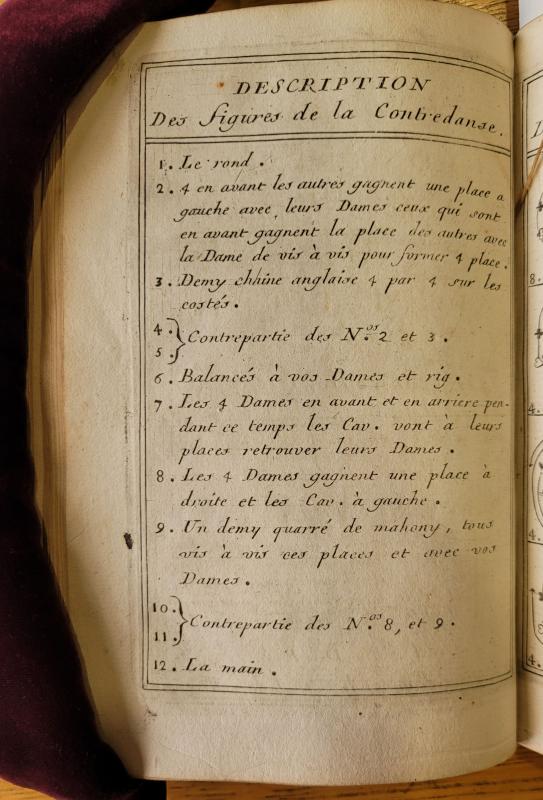 DESCRIPTION
Des figures de la Contredanse.
1. Le rond.
2. 4 en avant les autres gagnent une place a
gauche avec leurs Dames ceux qui sont
en avant gagnent la place des autres avec
la Dame de vis à vis pour former 4 place.
3. Demy chaine anglaise 4 par 4 sur les
costés.
4.
5. } Contrepartie des N.os 2 et 3.
6. Balancés à vos Dames et rig.
7. Les 4 Dames en avant et en arriere pen-
dant ce temps les Cav. vont à leurs
places retrouver leurs Dames.
8. Les 4 Dames gagnent une place à
droite et les Cav. à gauche.
9. Un demy quarré de mahony, tous
vis à vis ces places et avec vos
Dames.
10.
11. } Contrepartie des N.os 8, et 9.
12. La main.
8.
4.
4.
4.